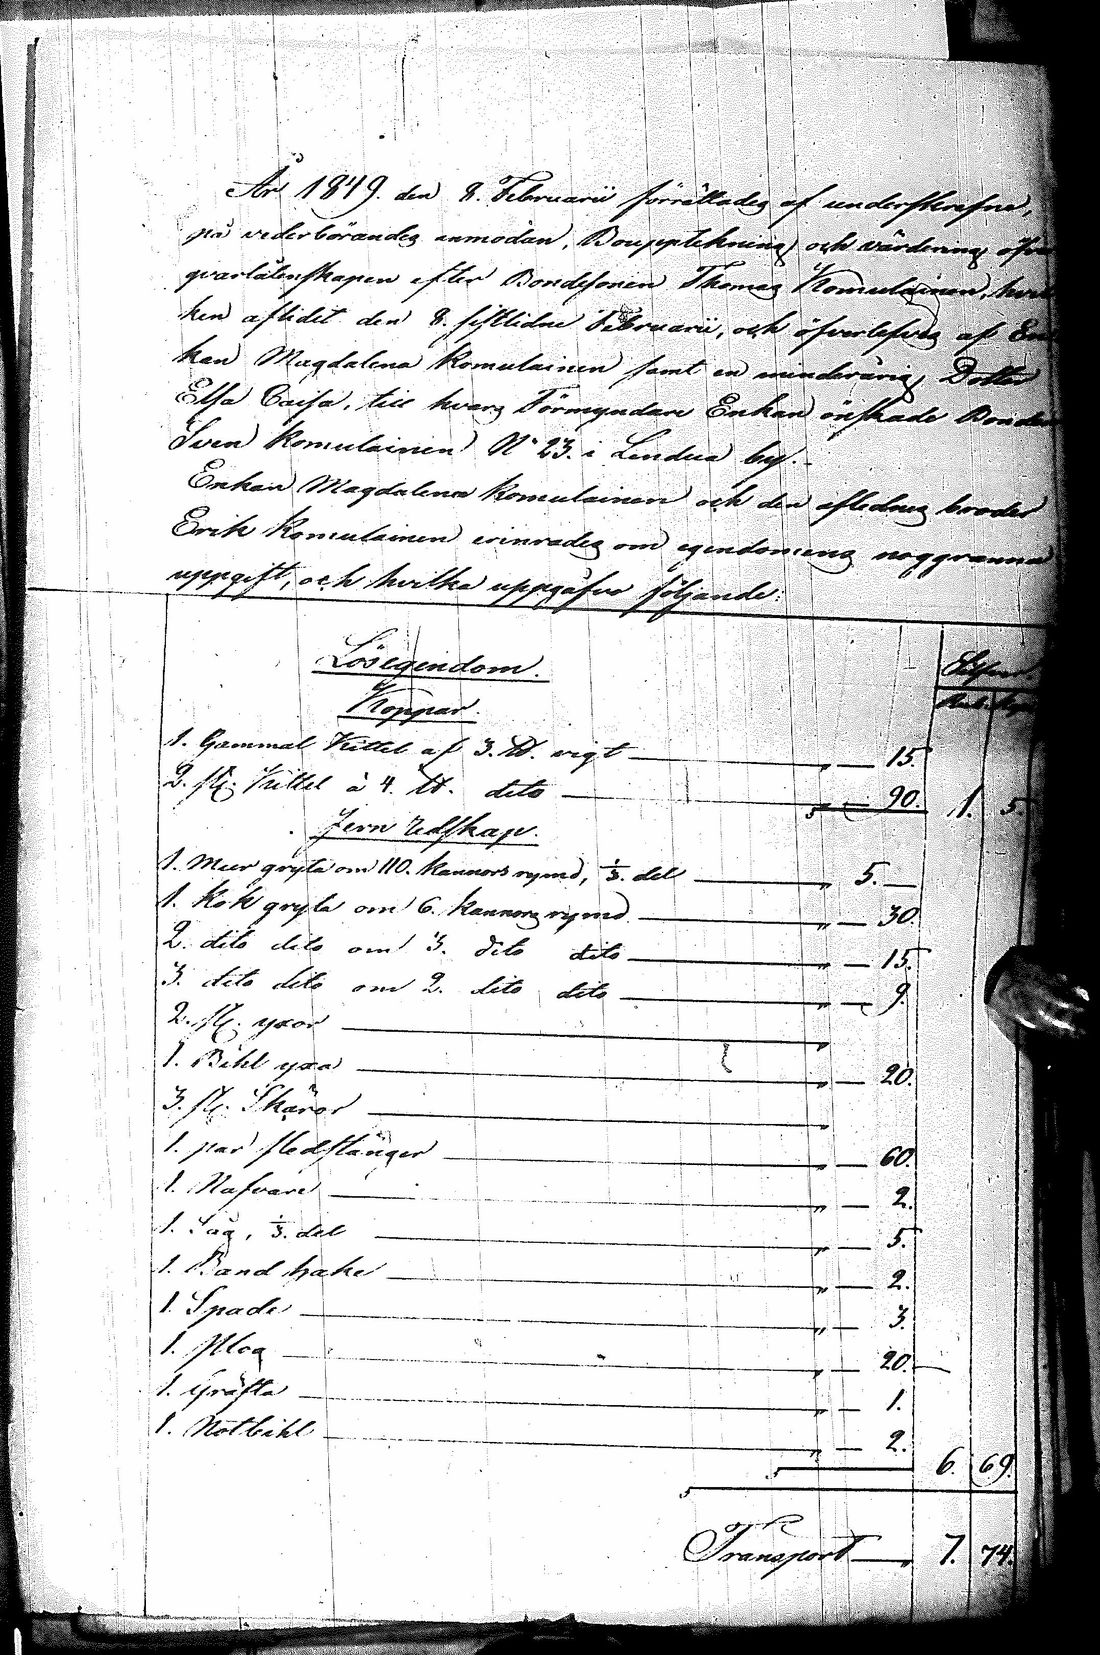 År 1849. den 8. Februarii förrättades af underskrefne,
på vederbörandes anmodan, Bouppteckning och värdering öfver
qvarlåtenskapen efter Bondesonen Thomas Komulainen, hvil-
ken aflidit den 8. sistlidne Februarii, och öfverlefves af En-
kan Magdalena Komulainen samt en minderårig Dotter
Elsa Caisa, till hvars Förmyndare Enkan önskade Bonden
Sven Komulainen N° 23. i Lendua by.-
Enkan Magdalena Komulainen och den aflednes broder
Erik Komulainen erinrades om egendomens noggranna
uppgift, och hvilka uppgåfvo följande:
Lösegendom. Silfver.
Koppar. Rub. Kop.
1. Gammal Kittel af 3. ℔. vigt „ — 15.
2. st. Kittel à 4. ℔. dito „ — 90. 1. 5.
Jern Redskap.
1. Mur gryta om 110. kannors rymd, 1/3. del „ 5. —
1. Kok gryta om 6. kannors rymd „ — 30.
2. dito dito om 3. dito dito „ — 15.
3. dito dito om 2. dito dito „ — 9.
2. st. yxor „
1. Bihl yxa „ — 20.
3. st. Skäror „
1. par sledstänger „ — 60.
1. Nafvare „ — 2.
1. Såg, 1/3. del „ — 5.
1. Band hake „ — 2.
1. Spade „ — 3.
1. Plog „ — 20.
1. Gräfta „ — 1.
1. Notbihl „ — 2. 6. 69.
Transport „ 7. 74.